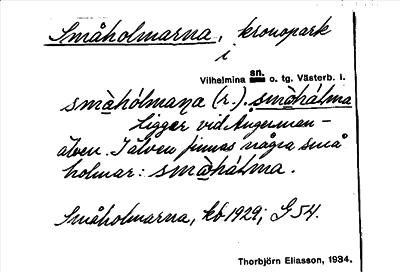 Småholmarna, kronopark
i
Vilhelmina sn. o. tg. Västerb. l.
småhólmaṇa (r.). småhálma
ligger vid Ångerman-
älven. I älven finnas några små
holmar: småhálma.
Småholmarna, kb 1929; G 54.
Thorbjörn Eliasson, 1934.